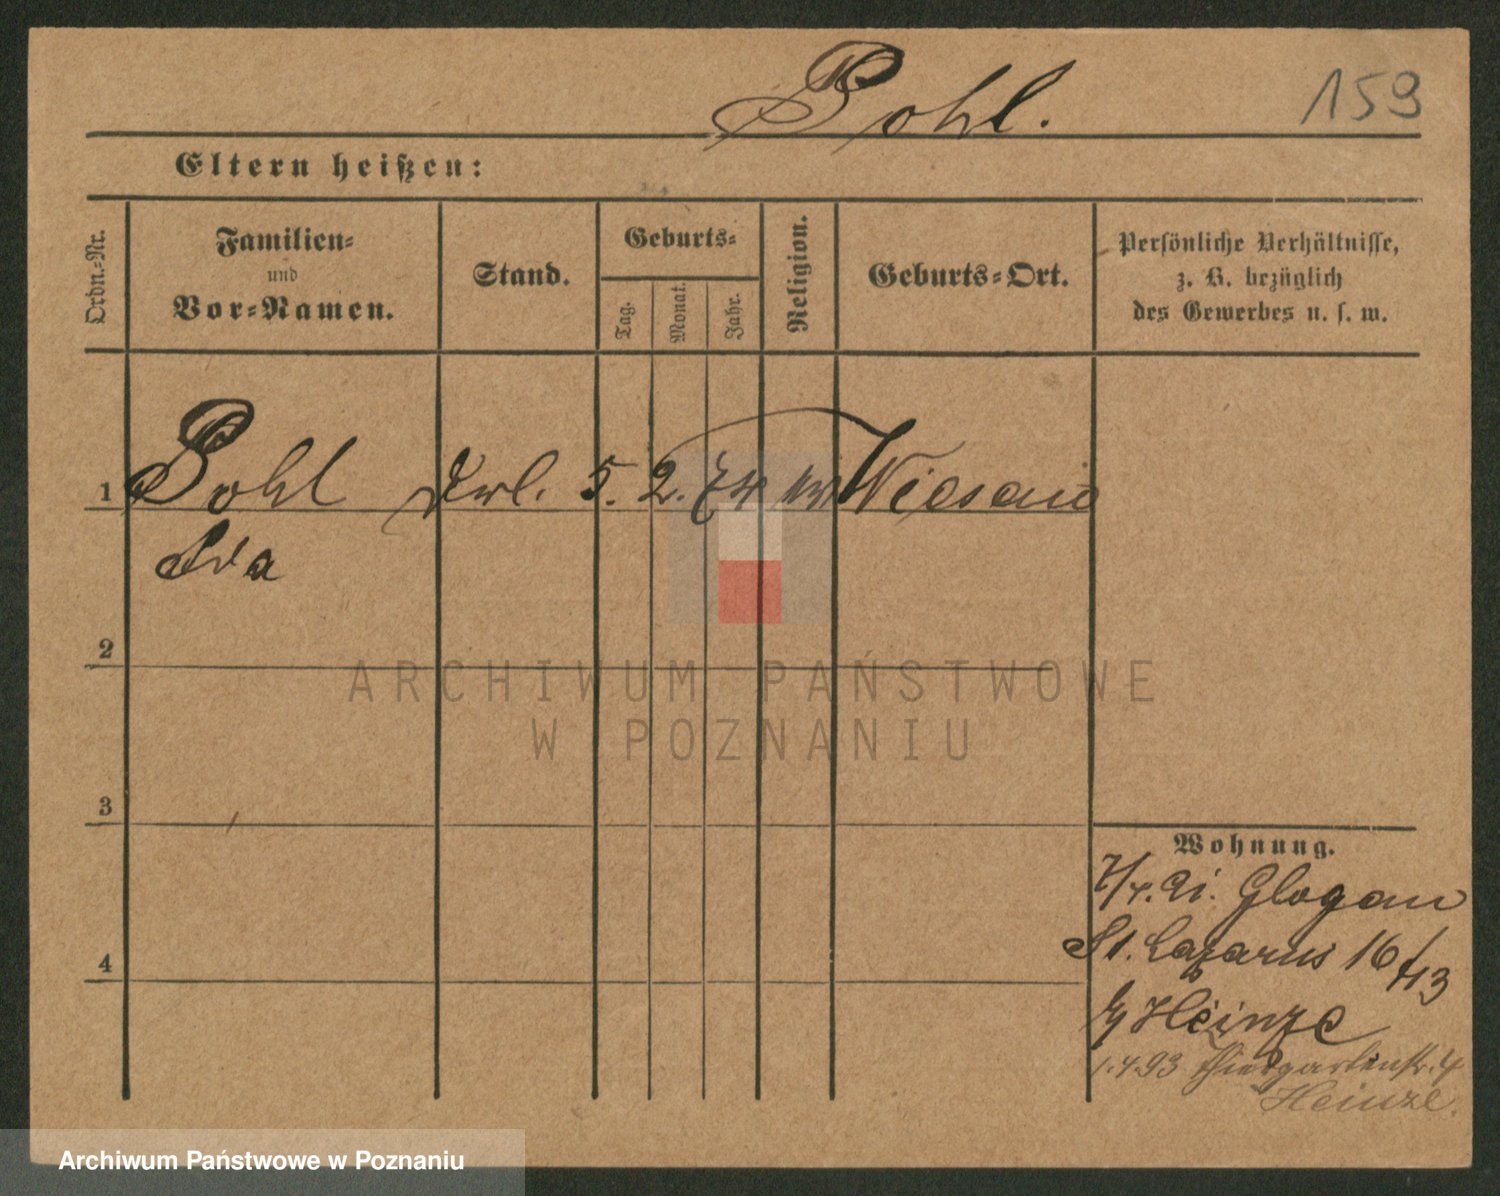 Pohl.
159
Eltern heißen:
Ordn.-Nr.
Familien-
und
Vor-Namen.
Stand.
Geburts-
Tag.
Monat.
Jahr.
Religion.
Geburts-Ort.
Persönliche Verhältnisse,
z. B. bezüglich
des Gewerbes u. s. w.
1 Pohl 5. 2. 74 Wiesau
Ida
2
ARCHIWUM PAŃSTWOWE
W POZNANIU
3
Wohnung.
Glogau
St. Lazarus 16
4
Heinze
1.4.93 Thiergartenstr. 4
Heinze.
Archiwum Państwowe w Poznaniu